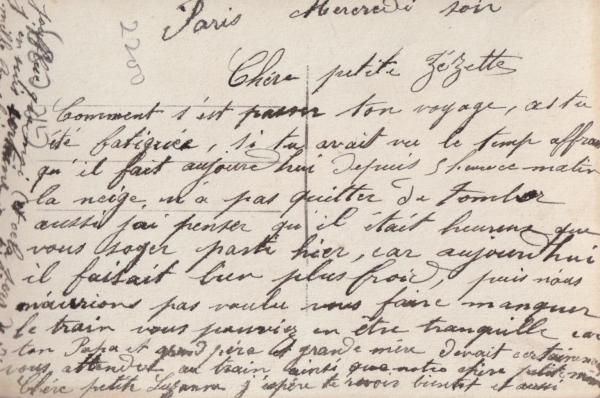 Paris Mercredi soir
2200
Chère petite Zézette
Comment s'est passer ton voyage, as tu
été fatiguée, si tu avait vu le temp affreu
qu'il fait aujourd hui depuis 5 heures matin
la neige n'a pas quitter de tomber
aussi j'ai penser qu'il était heureux que
vous soyer parti hier, car aujourd'hui
il faisait bien plus froid, puis nous
n'aurrions pas voulu vous faire manquer
le train vous pouviez en etre tranquille car
ton Papa et grand père et grande mère devait certainement
vous attendre au train ainsi que notre chère petite
Chère petite Suzanne j'espère te revoir bientot et aussi